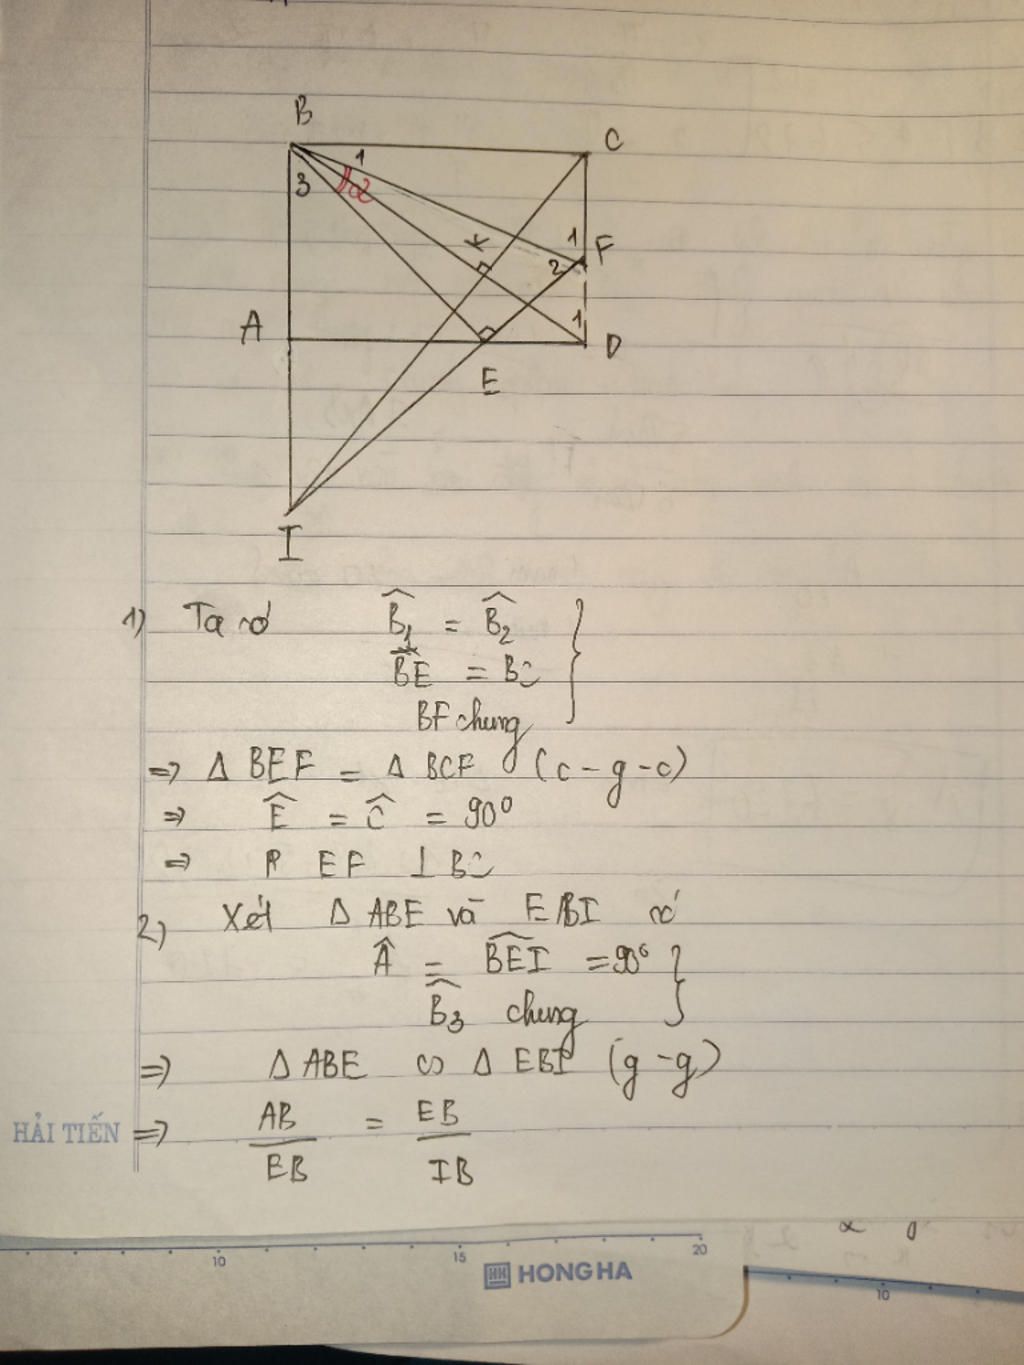 B
C
1
3
2
K
1
F
2
A
1
D
E
I
1) Ta có B̂₁ = B̂₂
BE = BC
BF chung
=> Δ BEF = Δ BCF (c - g - c)
=> Ê = Ĉ = 90°
=> EF ⊥ BC
2) Xét Δ ABE và EBI có
Â = B͡EI = 90°
B̂₃ chung
=> Δ ABE ∽ Δ EBI (g - g)
HẢI TIẾN => AB/EB = EB/IB
10
15
20
HONG HA
10